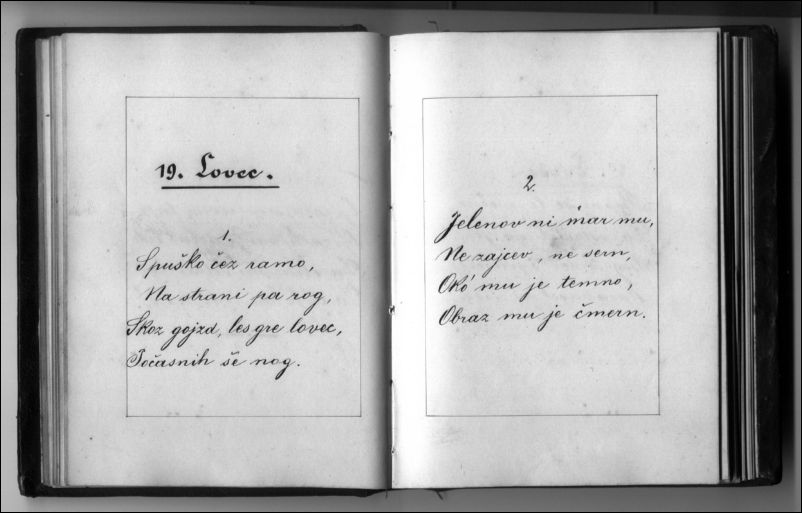 19. Lovec.
1.
S puško čez ramo,
Na strani pa rog,
Skoz gojzd, les gre lovec,
Počasnih še nog.
2.
Jelenov ni mar mu,
Ne zajcev, ne sern,
Oko mu je temno,
Obraz mu je čmern.